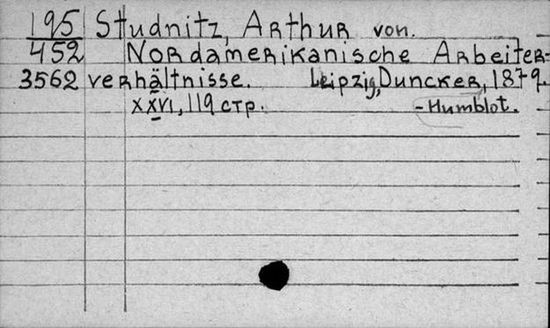 195 Studnitz, Arthur von.
452 Nordamerikanische Arbeiter-
3562 verhältnisse. Leipzig, Duncker, 1879.
XXVI, 119 стр. - Humblot.